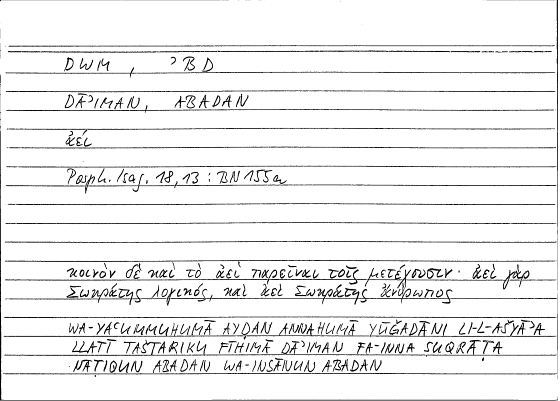 DWM, ʾBD
DĀʾIMAN, ABADAN
ἀεί
Porph. Isag. 18,13 : BN 155a
κοινὸν δὲ καὶ τὸ ἀεὶ παρεῖναι τοῖς μετέχουσιν· ἀεὶ γὰρ
Σωκράτης λογικός, καὶ ἀεὶ Σωκράτης ἄνθρωπος
WA-YAʿUMMUHUMĀ AYḌAN ANNAHUMĀ YŪǦADĀNI LI-L-AŠYĀʾA
LLATĪ TAŠTARIKU FĪHIMĀ DĀʾIMAN FA-INNA SUQRĀṬA
NĀṬIQUN ABADAN WA-INSĀNUN ABADAN